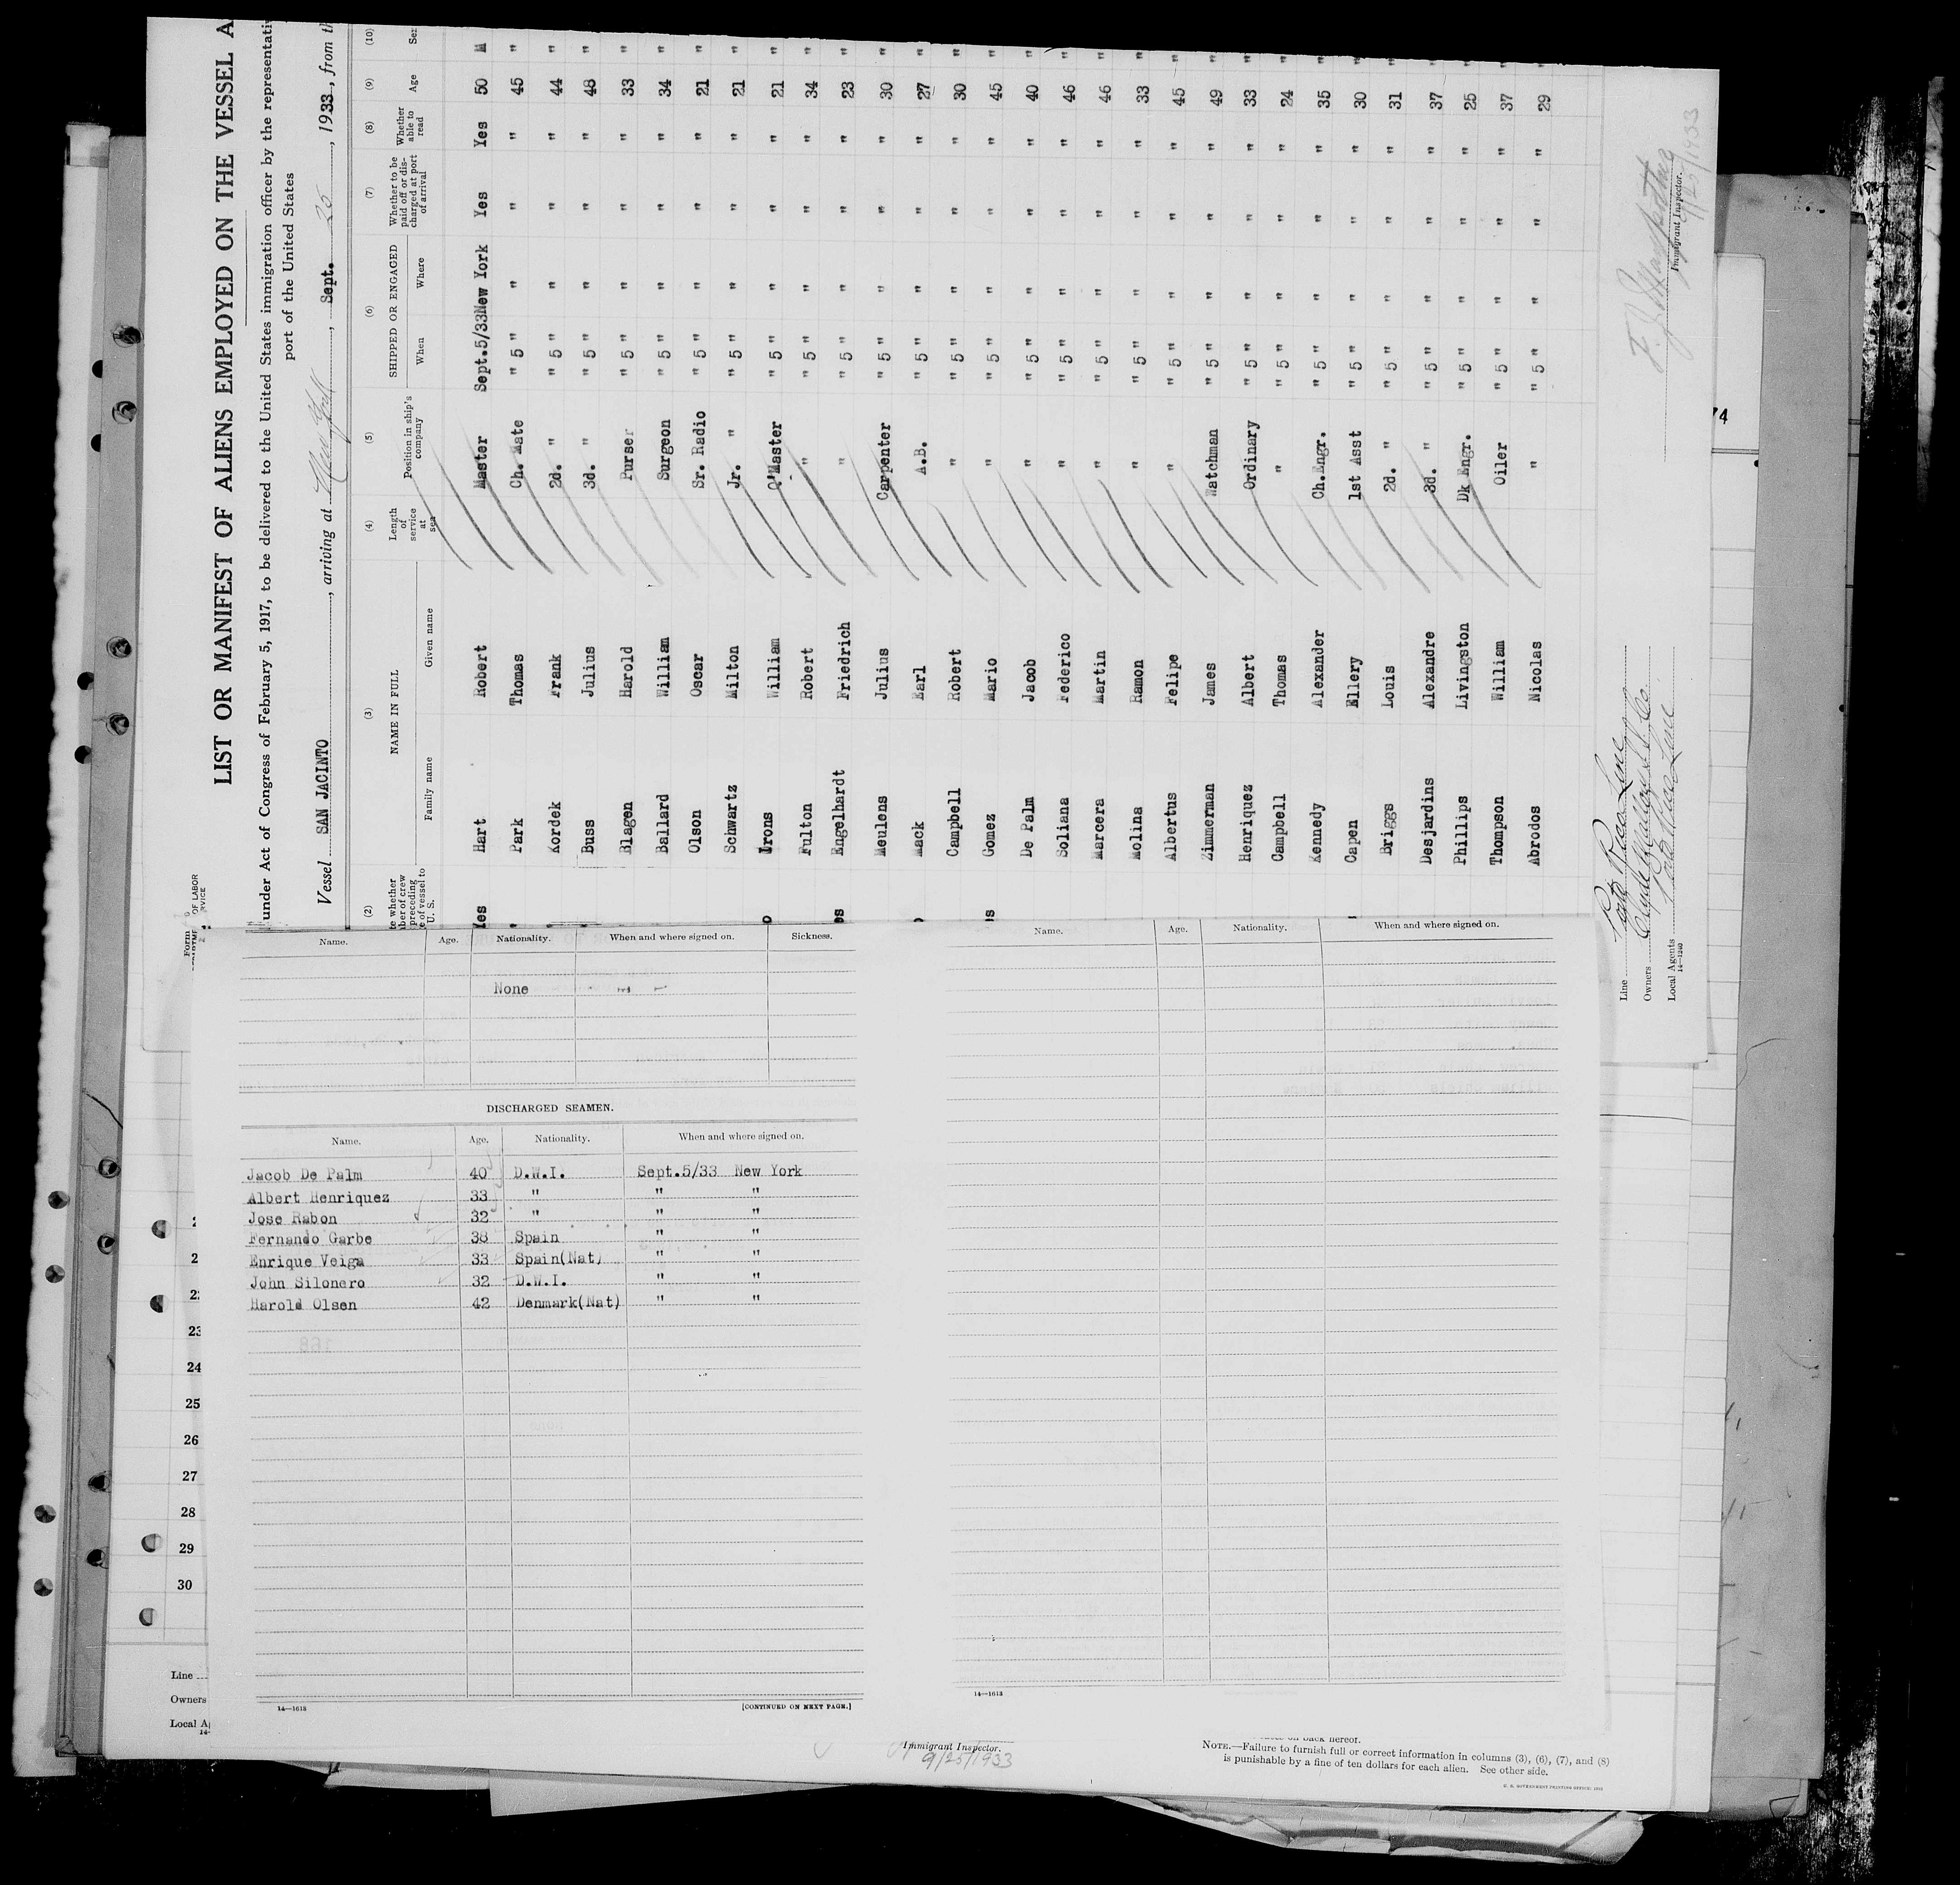 LIST OR MANIFEST OF ALIENS EMPLOYED ON THE VESSEL A
under Act of Congress of February 5, 1917, to be delivered to the United States immigration officer by the representati
port of the United States
Vessel SAN JACINTO, arriving at New York, Sept. 25, 1933, from th
(2) (3) (4) (5) (6) (7) (8) (9) (10)
NAME IN FULL Length of service at sea Position in ship's company SHIPPED OR ENGAGED Whether to be paid off or discharged at port of arrival Whether able to read Age Sex
Family name Given name When Where
Yes Hart Robert Master Sept.5/33 New York Yes Yes 50 M
Park Thomas Ch. Mate " 5 " " " " 45 "
Kordek Frank 2d. " " 5 " " " " 44 "
Buss Julius 3d. " " 5 " " " " 48 "
Blagen Harold Purser " 5 " " " " 33 "
Ballard William Surgeon " 5 " " " " 34 "
Olson Oscar Sr. Radio " 5 " " " " 21 "
Schwartz Milton Jr. " " 5 " " " " 21 "
Irons William Q'Master " 5 " " " " 21 "
Fulton Robert " " 5 " " " " 34 "
Engelhardt Friedrich " " 5 " " " " 23 "
Meulens Julius Carpenter " 5 " " " " 30 "
Mack Earl A.B. " 5 " " " " 27 "
Campbell Robert " " 5 " " " " 30 "
Gomez Mario " " 5 " " " " 45 "
De Palm Jacob " " 5 " " " " 40 "
Soliana Federico " " 5 " " " " 46 "
Marcera Martin " " 5 " " " " 46 "
Molina Ramon " " 5 " " " " 33 "
Albertus Felipe " " 5 " " " " 45 "
Zimmerman James Watchman " 5 " " " " 49 "
Henriquez Albert Ordinary " 5 " " " " 33 "
Campbell Thomas " " 5 " " " " 24 "
Kennedy Alexander Ch.Engr. " 5 " " " " 35 "
Capen Ellery 1st Asst " 5 " " " " 30 "
Briggs Louis 2d. " " 5 " " " " 31 "
Desjardins Alexandre 3d. " " 5 " " " " 37 "
Phillips Livingston Dk Engr. " 5 " " " " 25 "
Thompson William Oiler " 5 " " " " 37 "
Abrodos Nicolas " " 5 " " " " 29
Line Porto Rico Line
Owners Clyde Mallory S.S. Co.
Local Agents Porto Rico Line
14—1240
Immigrant Inspector.
9/25/1933
74
Name. Age. Nationality. When and where signed on. Sickness.
None
DISCHARGED SEAMEN.
Name. Age. Nationality. When and where signed on.
Jacob De Palm 40 D.W.I. Sept.5/33 New York
Albert Henriquez 33 " " "
Jose Rabon 32 " " "
Fernando Garbe 38 Spain " "
Enrique Veiga 33 Spain(Nat) " "
John Silonero 32 D.W.I. " "
Harold Olsen 42 Denmark(Nat) " "
14—1613
[CONTINUED ON NEXT PAGE.]
Name. Age. Nationality. When and where signed on.
14—1613
23
24
25
26
27
28
29
30
Line
Owners
Local A
Immigrant Inspector.
9/25/1933
back hereof.
NOTE.—Failure to furnish full or correct information in columns (3), (6), (7), and (8)
is punishable by a fine of ten dollars for each alien. See other side.
U. S. GOVERNMENT PRINTING OFFICE